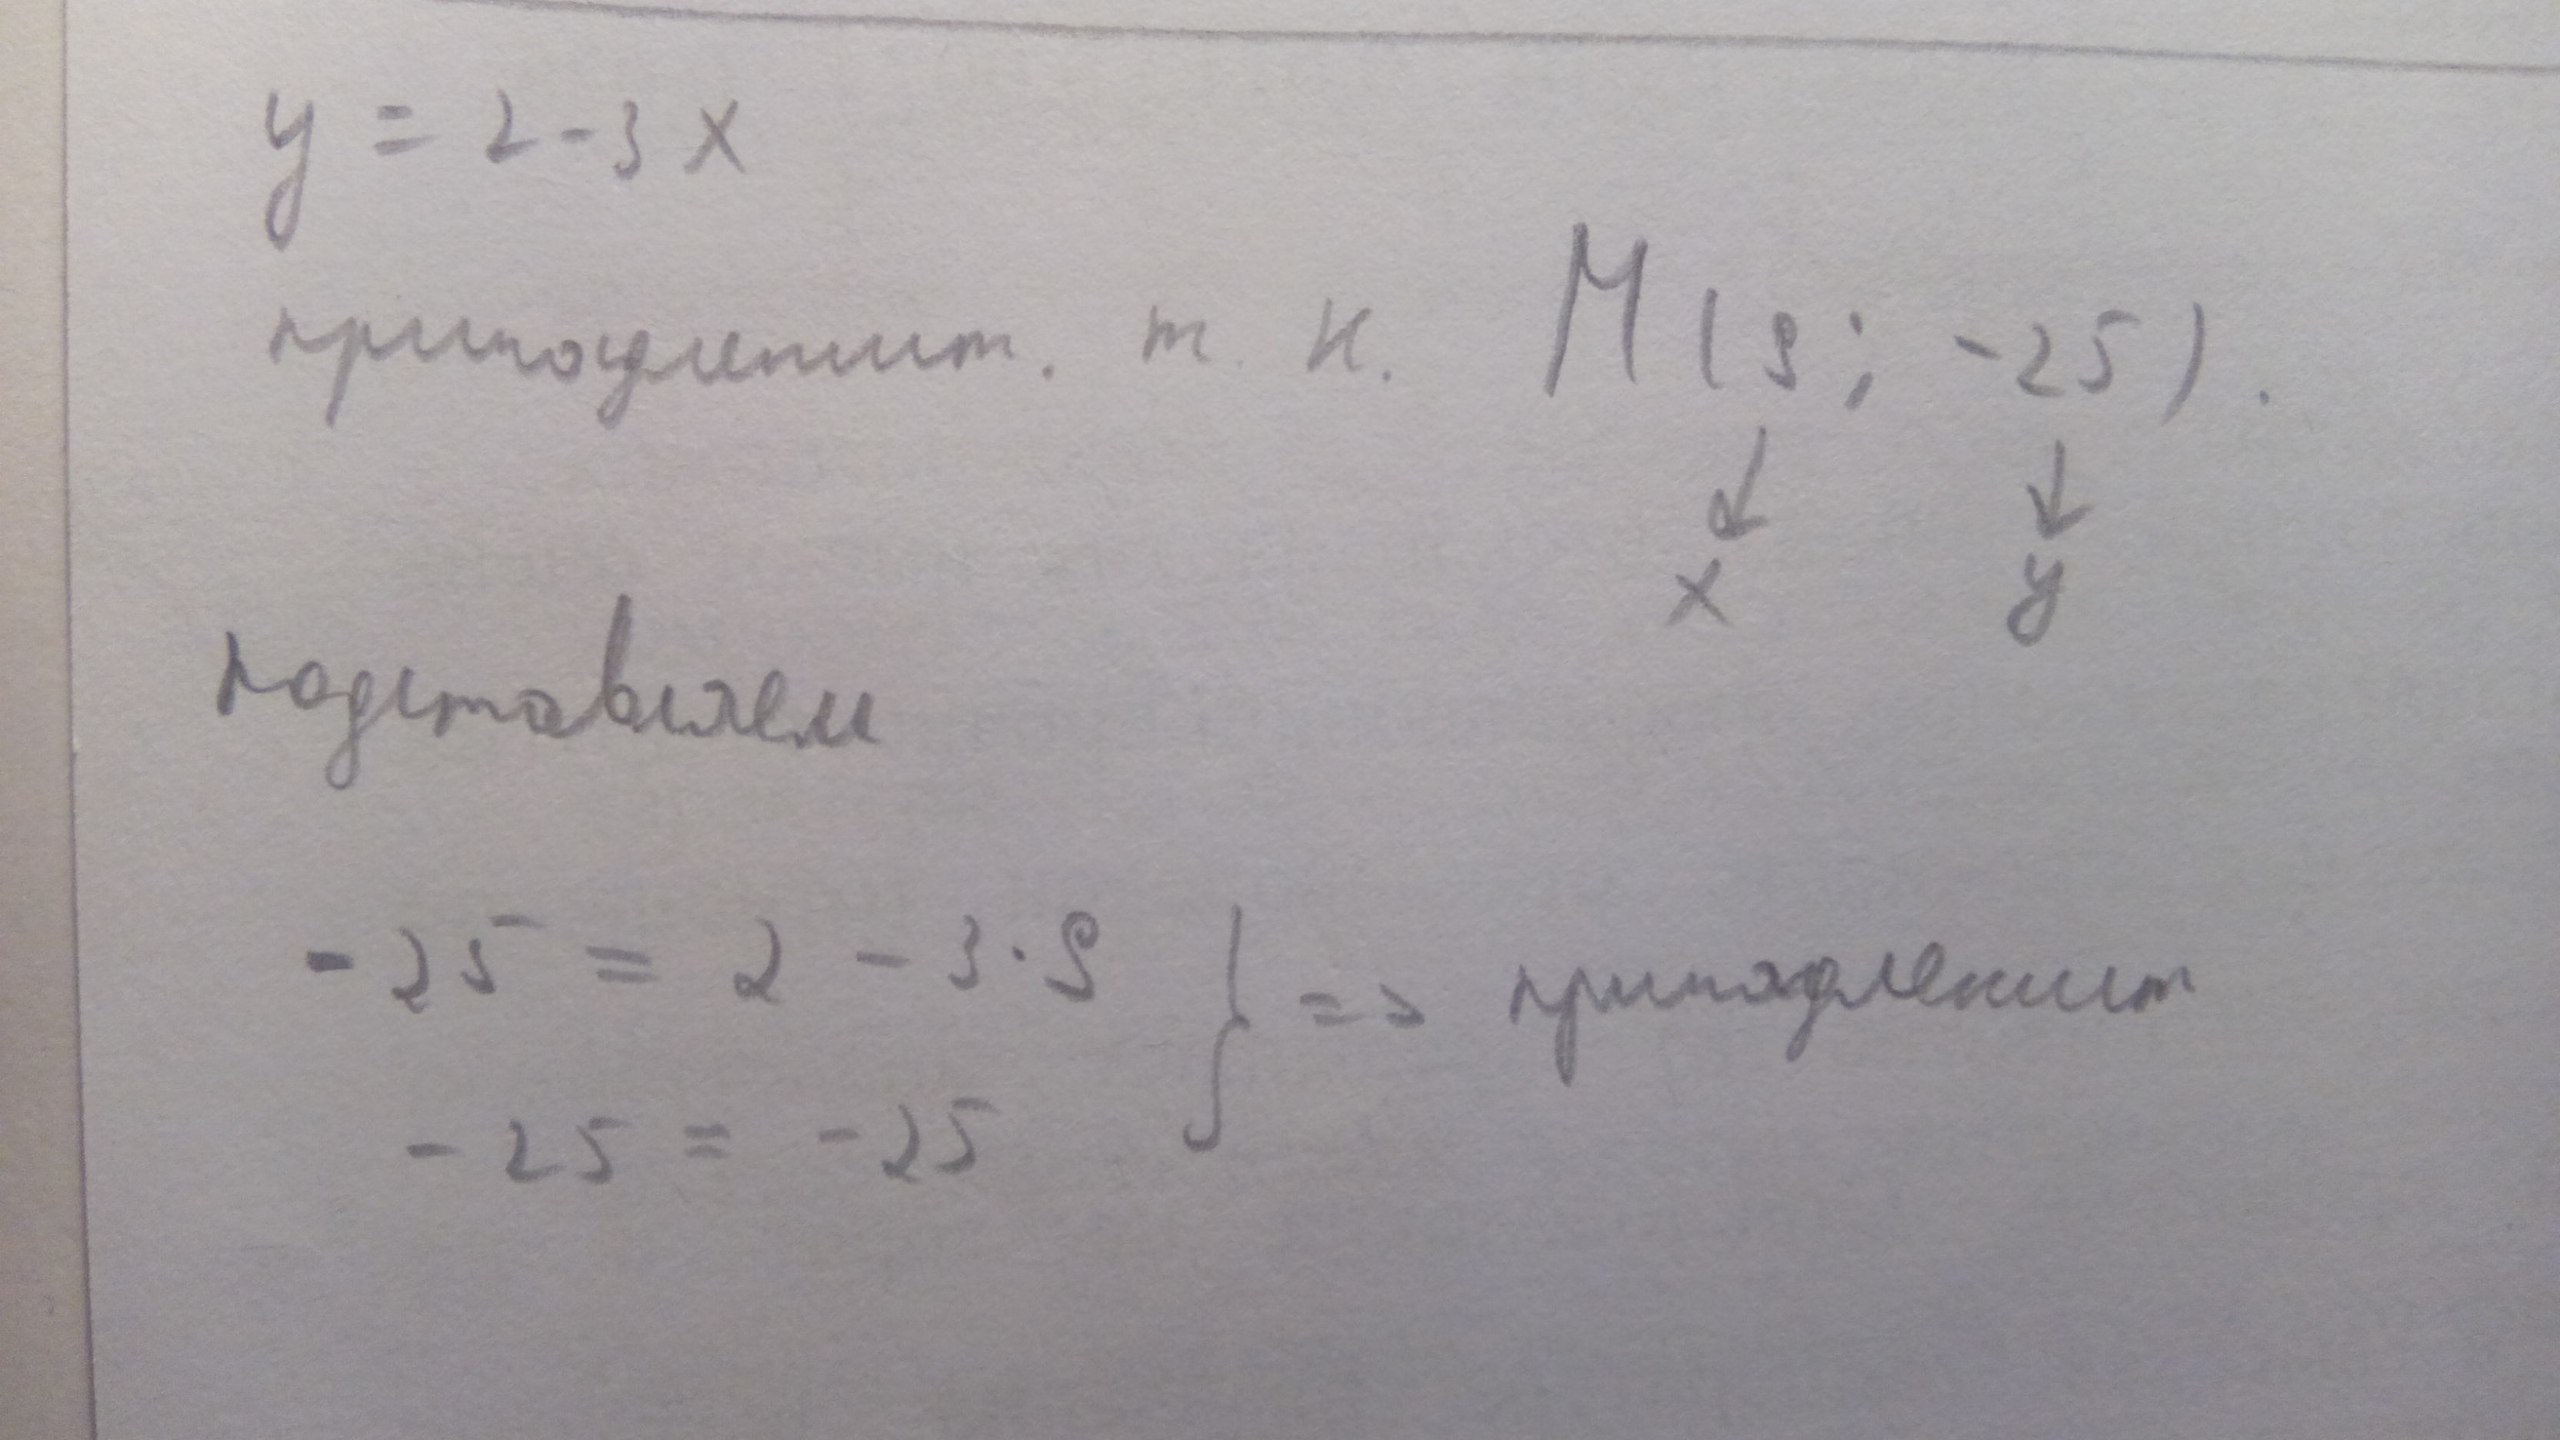 y = 2 - 3x
принадлежит. т. к. M(9; -25).
↓ ↓
x y
подставляем
-25 = 2 - 3·9 } => принадлежит
-25 = -25